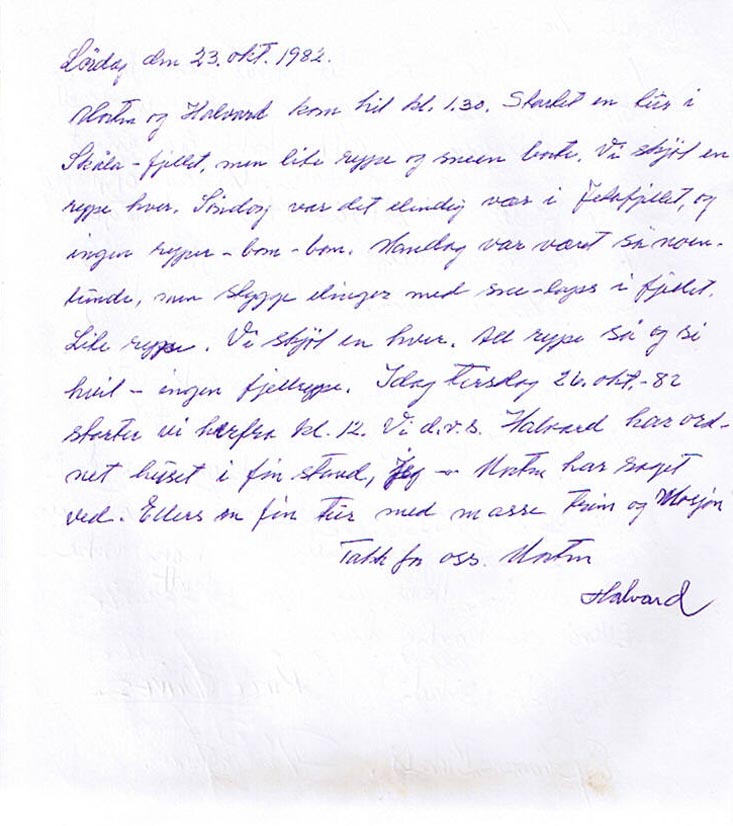 Lördag den 23. okt. 1982.
Morten og Halvard kom hit kl. 1.30. Startet en tur i
Skåla-fjellet, men lite rype og sneen borte. Vi skjøt en
rype hver. Søndag var det elendig vær i fjellet, og
ingen ryper - bom - bom. Mandag var været så noen-
lunde, men stygge elinger med sne-kaps i fjellet.
Lite rype. Vi skjøt en hver. All rype så og si
hvit - ingen fjellrype. Idag tirsdag 26. okt. - 82
starter vi herfra kl. 12. Vi d.v.s. Halvard har ord-
net huset i fin stand, jeg - Morten har saget
ved. Ellers en fin tur med masse trim og Mosjon
Takk for oss. Morten
Halvard